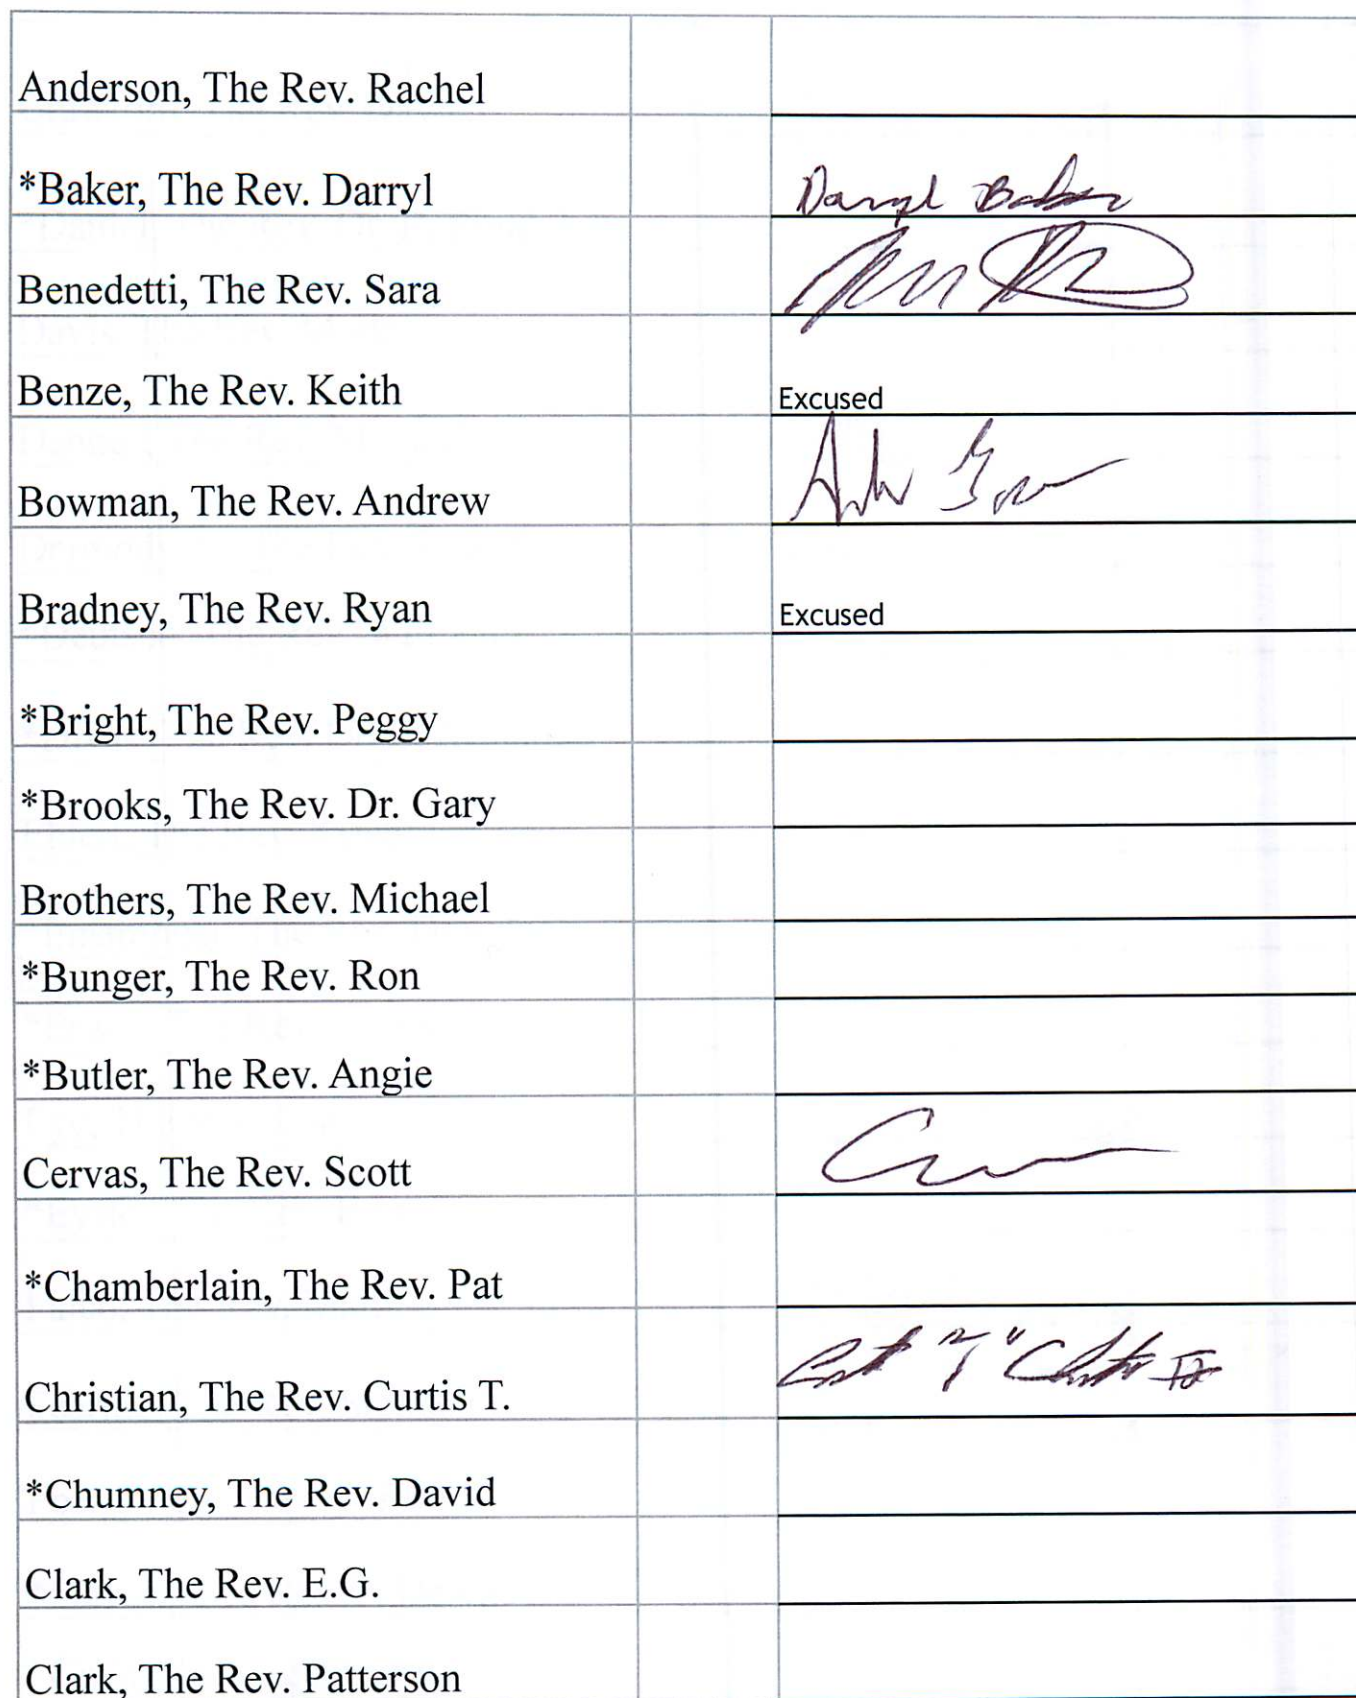 Anderson, The Rev. Rachel
*Baker, The Rev. Darryl Darryl Baker
Benedetti, The Rev. Sara
Benze, The Rev. Keith Excused
Bowman, The Rev. Andrew
Bradney, The Rev. Ryan Excused
*Bright, The Rev. Peggy
*Brooks, The Rev. Dr. Gary
Brothers, The Rev. Michael
*Bunger, The Rev. Ron
*Butler, The Rev. Angie
Cervas, The Rev. Scott
*Chamberlain, The Rev. Pat
Christian, The Rev. Curtis T.
*Chumney, The Rev. David
Clark, The Rev. E.G.
Clark, The Rev. Patterson